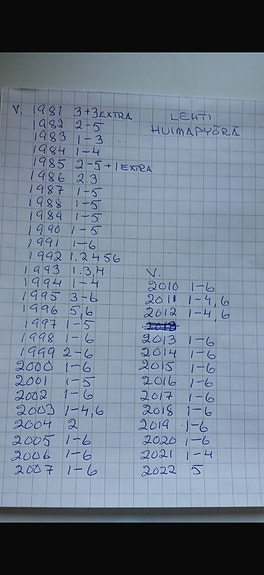 V. 1981 3+3EXTRA
LEHTI
HUIMAPYÖRÄ
1982 2-5
1983 1-3
1984 1-4
1985 2-5+1EXTRA
1986 2,3
1987 1-5
1988 1-5
1989 1-5
1990 1-5
1991 1-6
1992 1,2456
1993 1,3,4
1994 1-4
1995 3-6
1996 5,6
1997 1-5
1998 1-6
1999 2-6
2000 1-6
2001 1-5
2002 1-6
2003 1-4,6
2004 2
2005 1-6
2006 1-6
2007 1-6
V.
2010 1-6
2011 1-4,6
2012 1-4,6
2013 1-6
2014 1-6
2015 1-6
2016 1-6
2017 1-6
2018 1-6
2019 1-6
2020 1-6
2021 1-4
2022 5